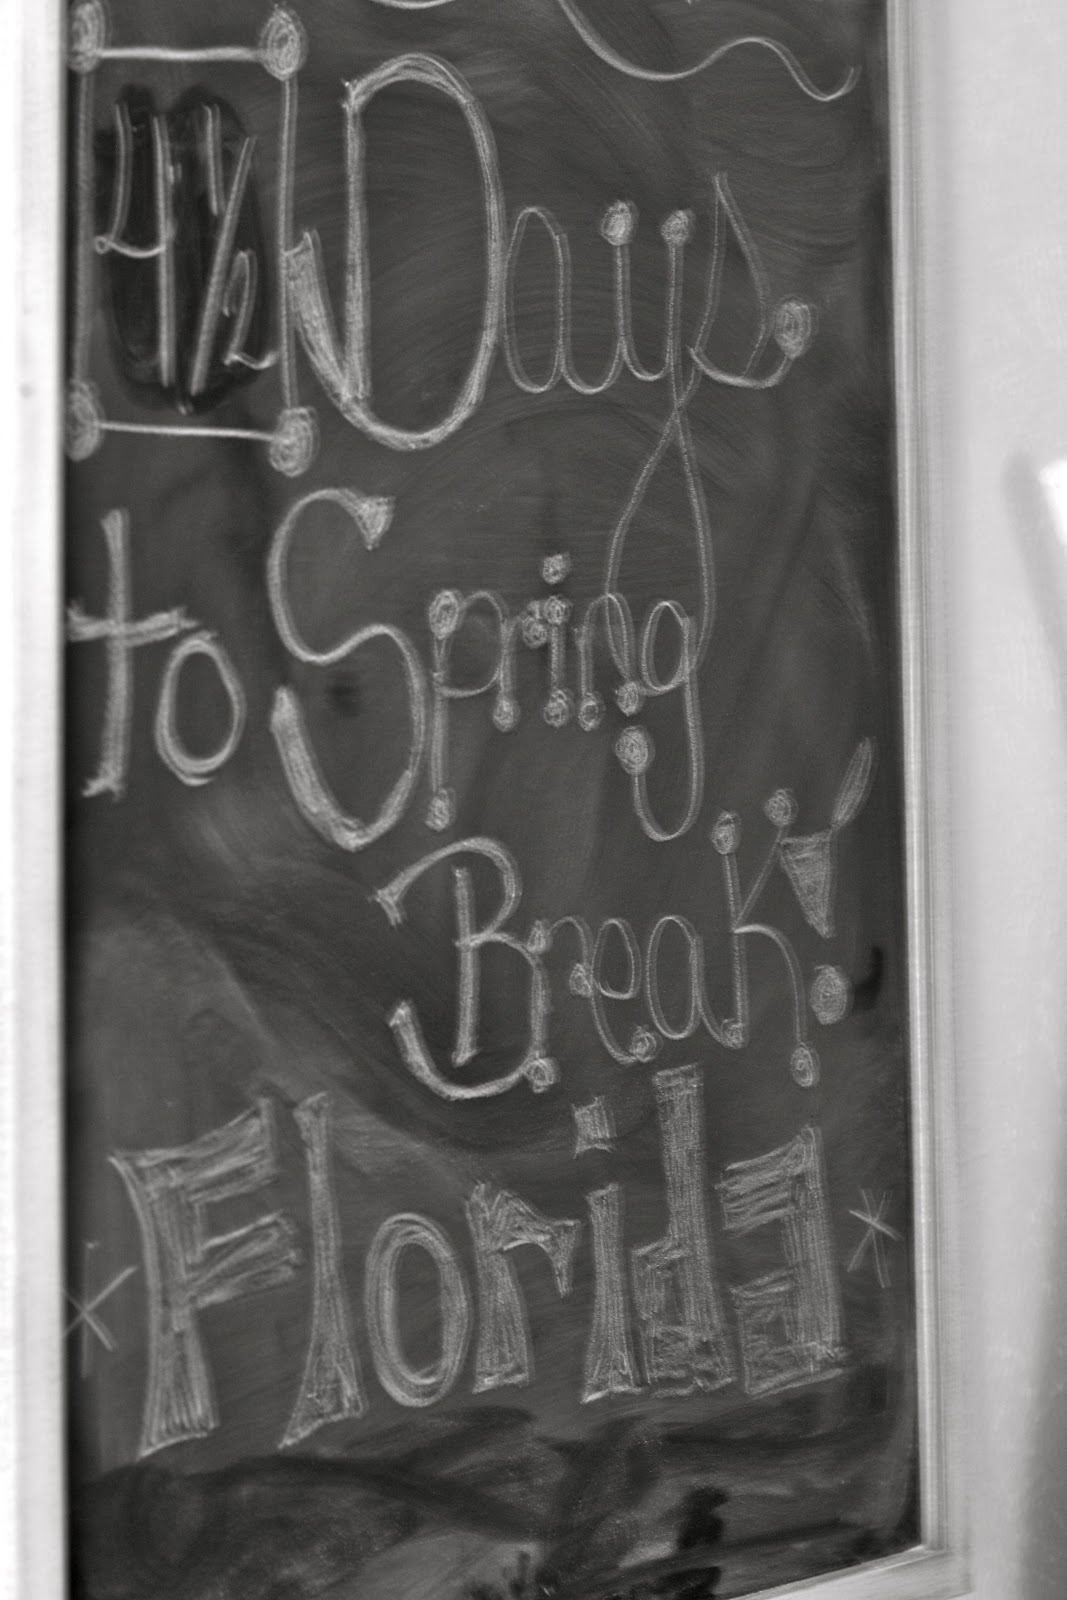 4 1/2 Days
to Spring
Break!
Florida